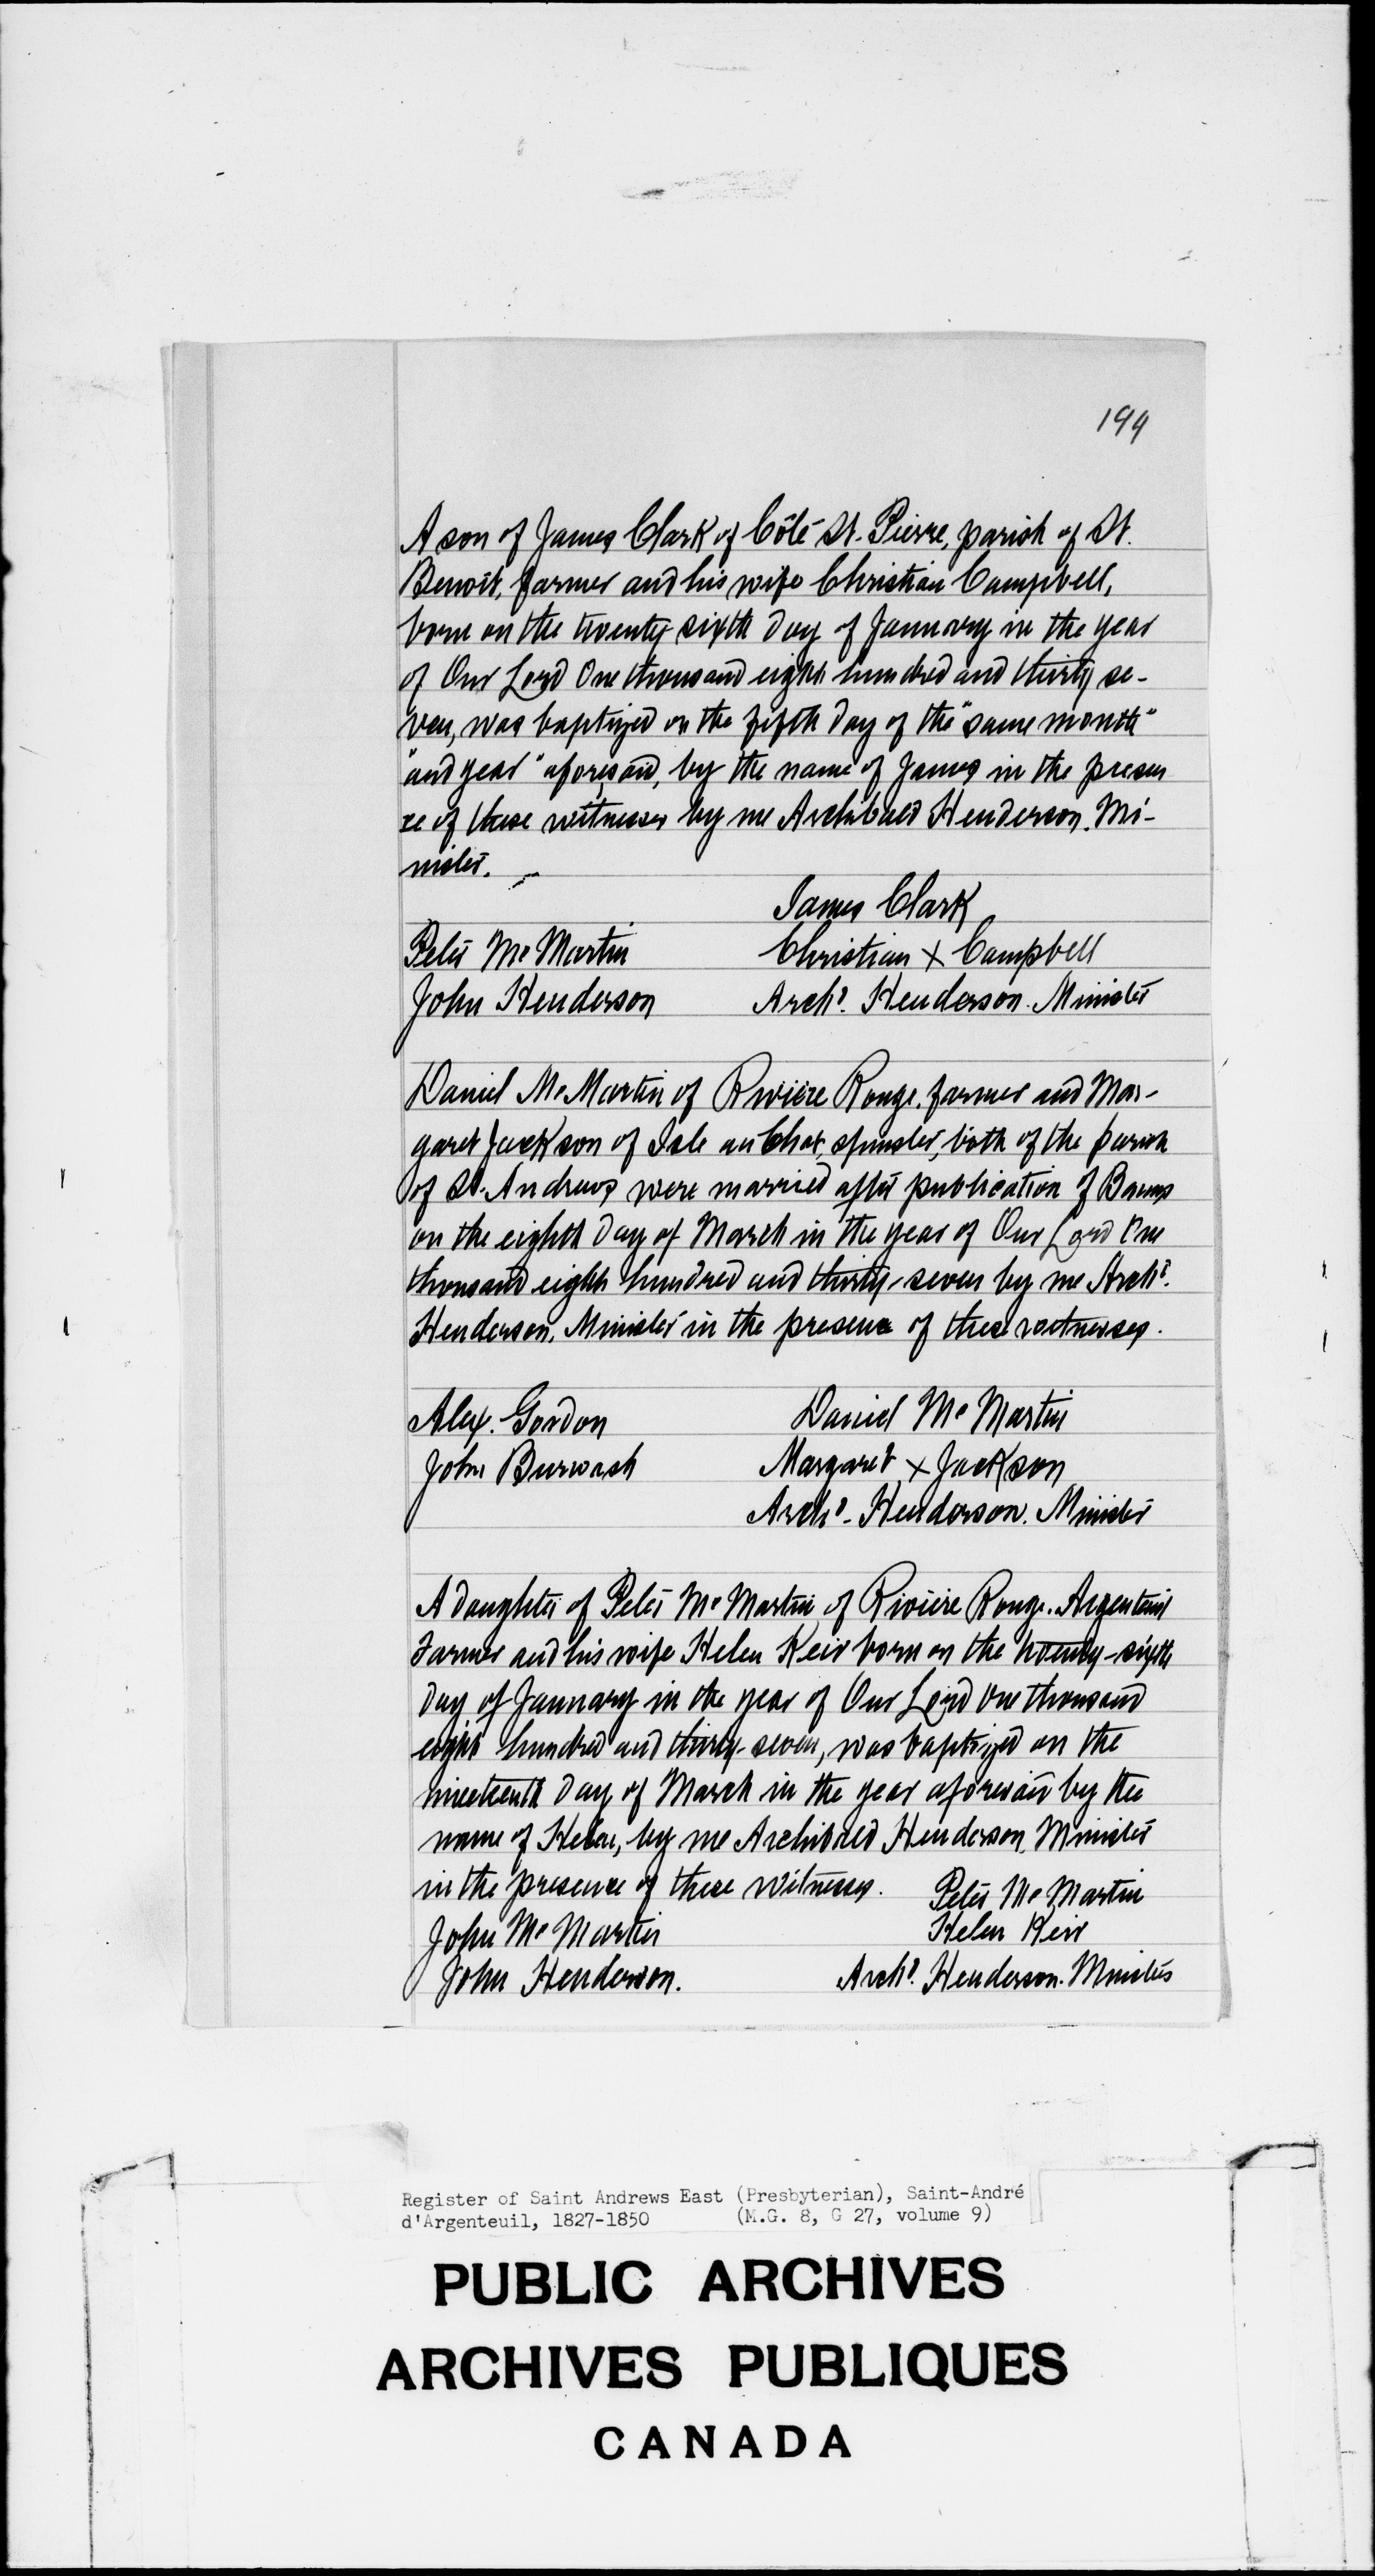 199
A son of James Clark of Côté St. Pierre, parish of St.
Benoit, farmer and his wife Christian Campbell,
born on the twenty sixth day of January in the year
of Our Lord One thousand eight hundred and thirty se-
ven, was baptized on the fifth day of the "same month"
"and year" aforesaid, by the name of James in the presen
ce of these witnesses by me Archibald Henderson. Mi-
nister.
James Clark
Peter Mc Martin Christian X Campbell
John Henderson Archd. Henderson. Minister
Daniel Mc Martin of Rivière Rouge, farmer and Mar-
garet Jackson of Isle au Chat, spinster, both of the parish
of St. Andrews were married after publication of Banns
on the eighth day of March in the year of Our Lord One
thousand eight hundred and thirty-seven by me Archd.
Henderson, Minister in the presence of these witnesses.
Alex. Gordon Daniel Mc Martin
John Burwash Margaret X Jackson
Archd. Henderson. Minister
A daughter of Peter Mc Martin of Rivière Rouge. Argenteuil
Farmer and his wife Helen Keir born on the twenty-sixth
day of January in the year of Our Lord One thousand
eight hundred and thirty-seven, was baptized on the
nineteenth day of March in the year aforesaid by the
name of Helen, by me Archibald Henderson, Minister
in the presence of these witnesses. Peter Mc Martin
John Mc Martin Helen Keir
John Henderson. Archd. Henderson. Minister
Register of Saint Andrews East (Presbyterian), Saint-André
d'Argenteuil, 1827-1850 (M.G. 8, G 27, volume 9)
PUBLIC ARCHIVES
ARCHIVES PUBLIQUES
CANADA